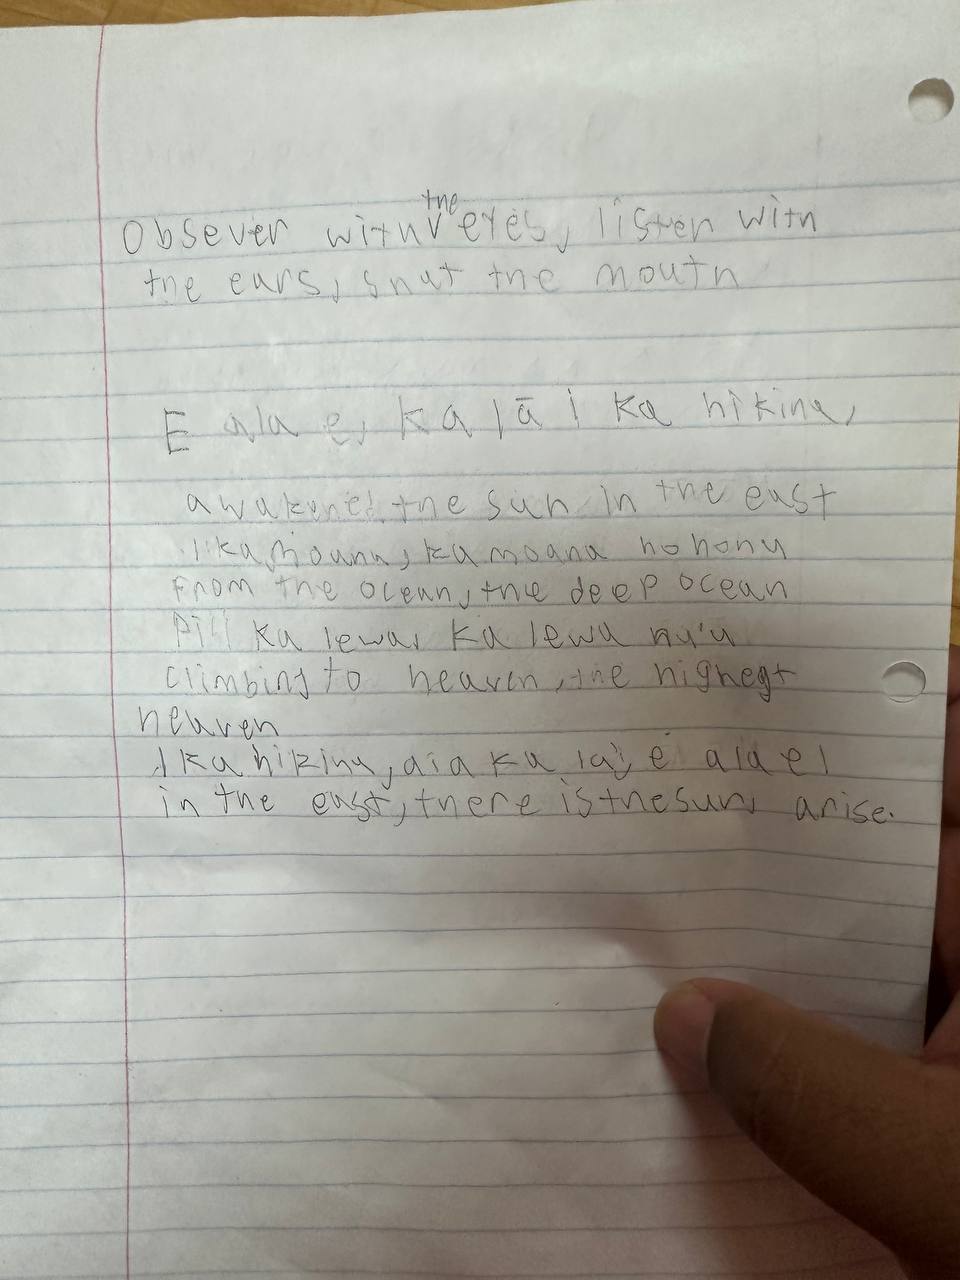 Obsever with the eyes, listen with
the ears, shut the mouth
E ala e, ka lā i ka hikina,
awaken! the sun in the east
i ka moana, ka moana hohonu
From the ocean, the deep ocean
Piʻi ka lewa, ka lewa nu'u
climbing to heaven, the highest
heaven
I ka hikina, aia ka la, e ala e!
in the east, there is the sun, arise.